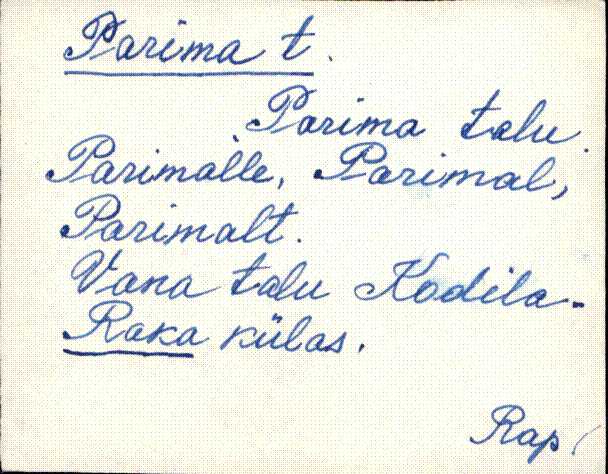 Parima t.
Parima talu.
Parimalle, Parimal,
Parimalt.
Vana talu Kodila-
Raka külas.
Rap.